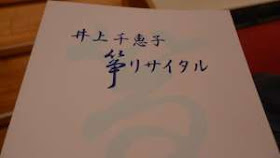 井上千惠子
箏リサイタル